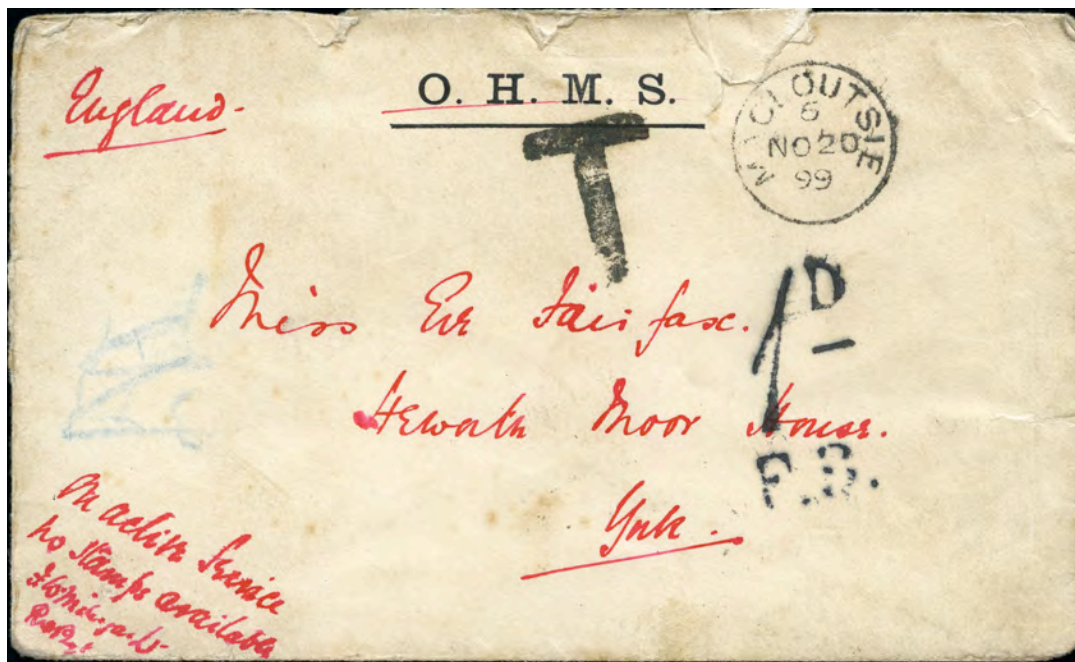 England.
O. H. M. S.
MACLOUTSIE
6
NO 20
99
T
Miss Eve Fairfax.
1D
Heworth Moor House.
F.B.
York.
On active Service
no stamps available